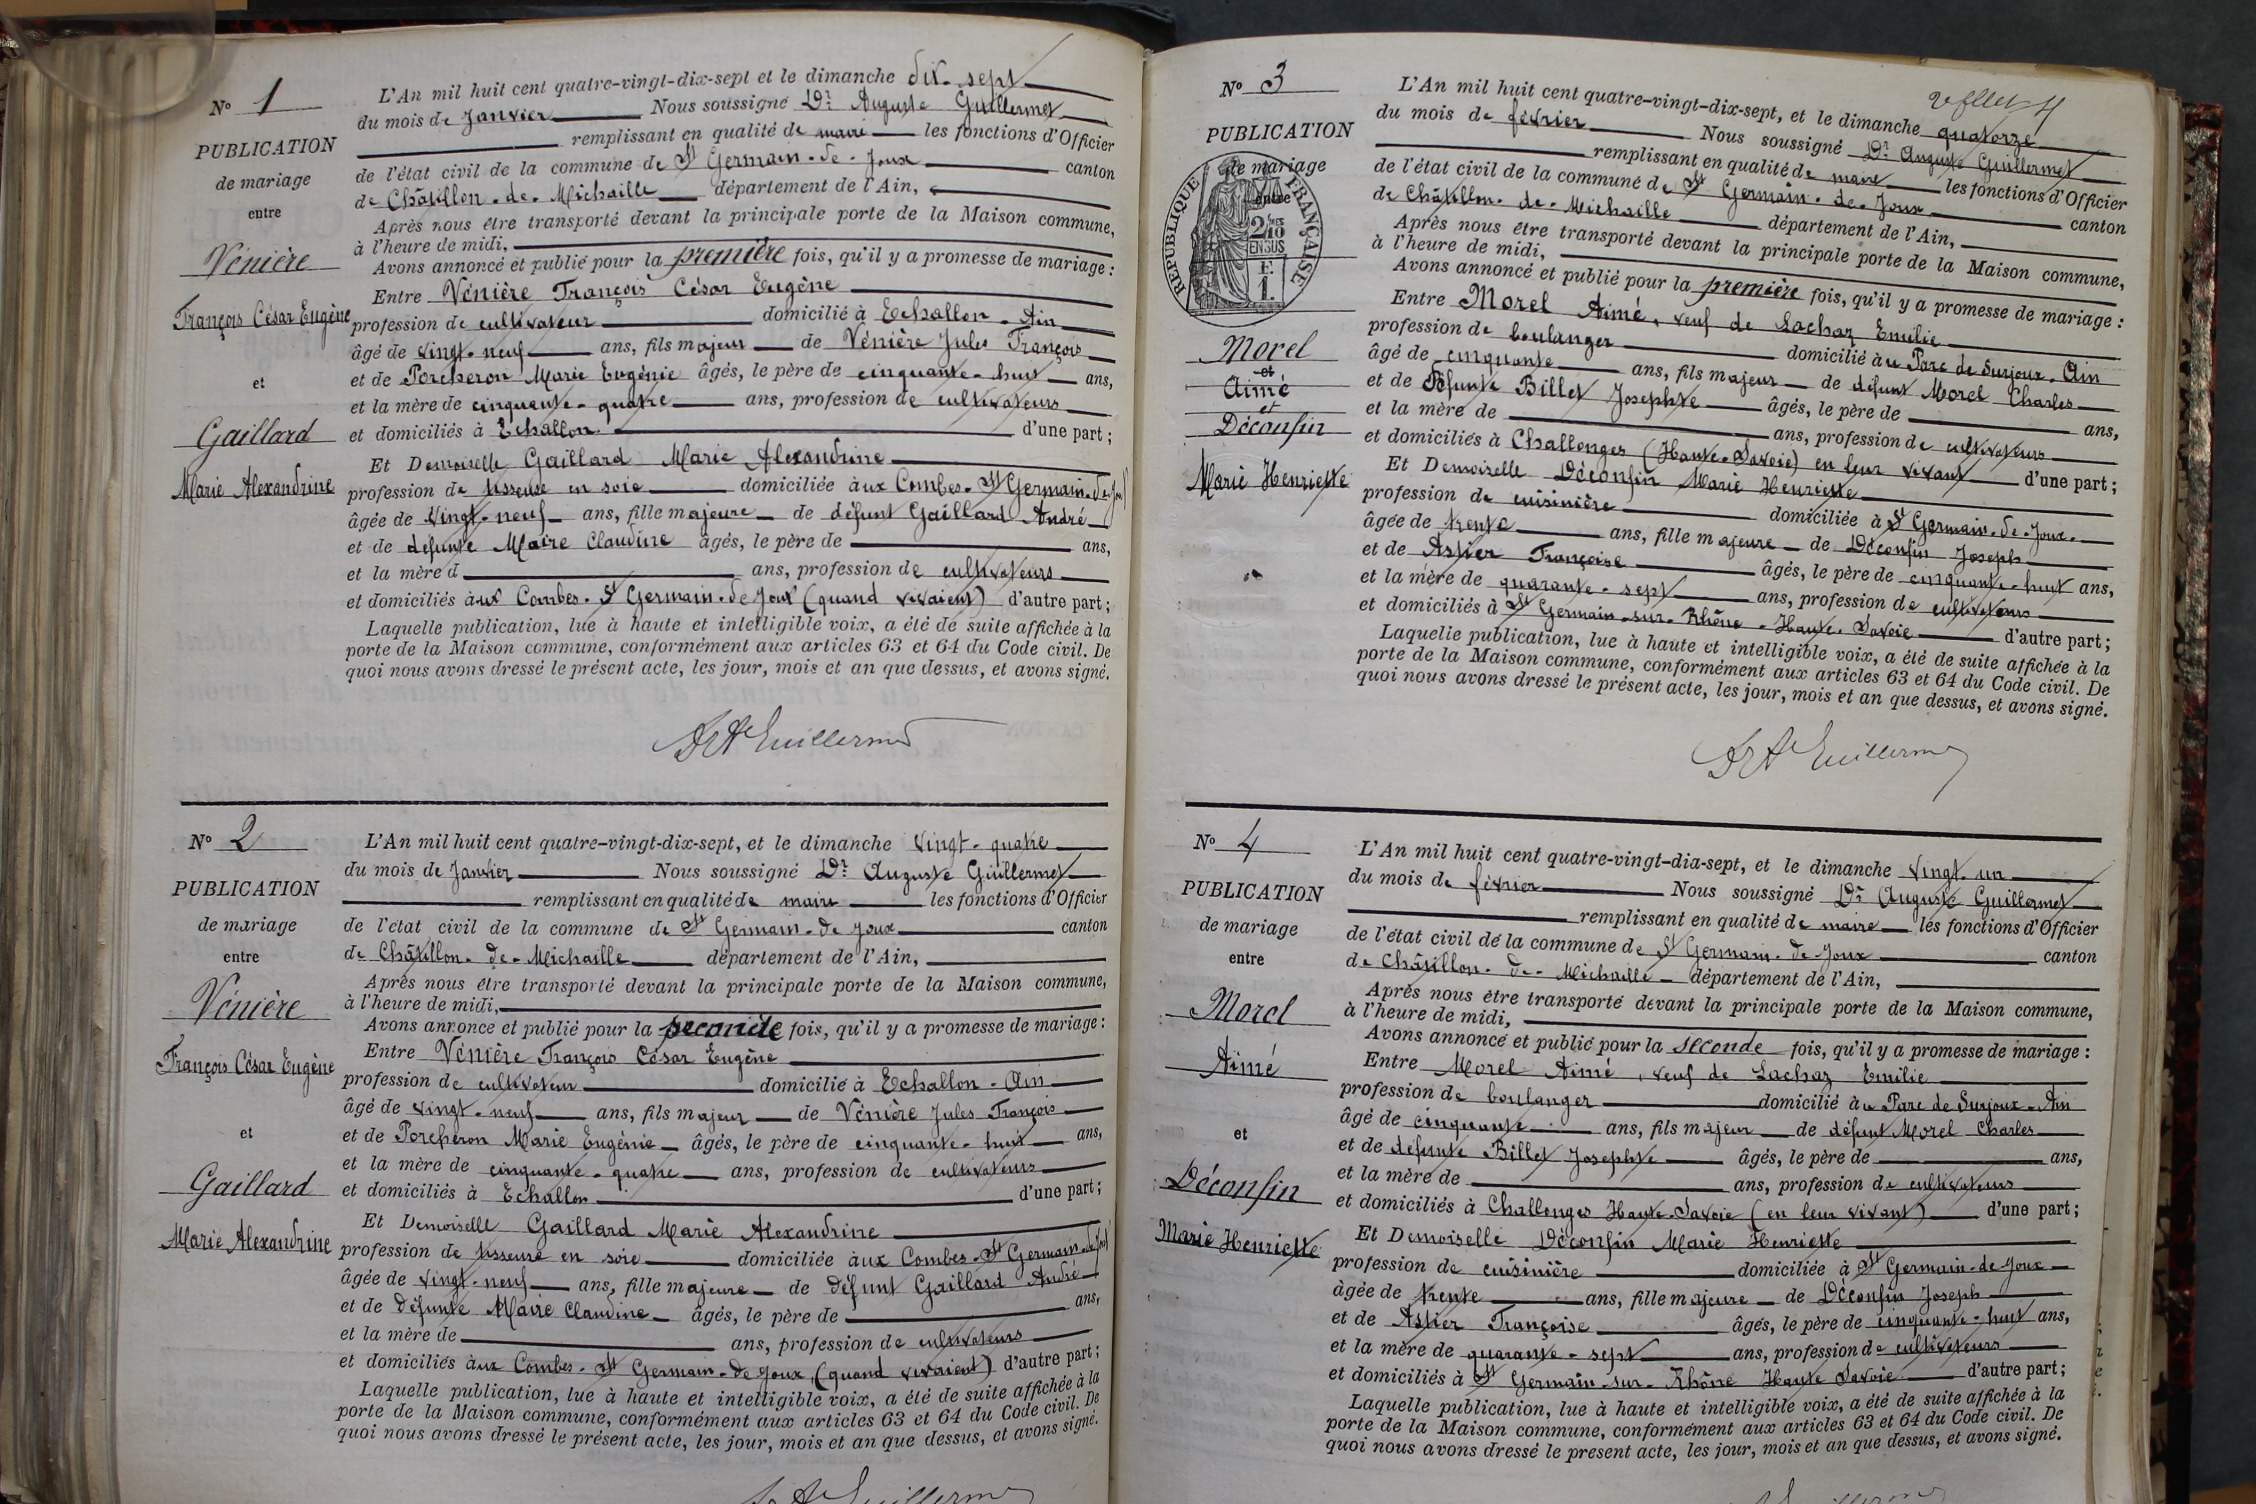 N° 1
PUBLICATION
de mariage
entre
Vénière
François César Eugène
et
Gaillard
Marie Alexandrine
L'An mil huit cent quatre-vingt-dix-sept et le dimanche dix-sept
du mois de Janvier Nous soussigné Dr Auguste Guillermet
remplissant en qualité de maire les fonctions d'Officier
de l'état civil de la commune de St Germain-de-Joux canton
de Châtillon-de-Michaille département de l'Ain,
Après nous être transporté devant la principale porte de la Maison commune,
à l'heure de midi,
Avons annoncé et publié pour la première fois, qu'il y a promesse de mariage :
Entre Vénière François César Eugène
profession de cultivateur domicilié à Echallon-Ain
âgé de vingt-neuf ans, fils majeur de Vénière Jules François
et de Porcheron Marie Eugénie âgés, le père de cinquante-huit ans,
et la mère de cinquante-quatre ans, profession de cultivateurs
et domiciliés à Echallon d'une part ;
Et Demoiselle Gaillard Marie Alexandrine
profession de tisseuse en soie domiciliée aux Combes-St Germain-de-Joux
âgée de vingt-neuf ans, fille majeure de défunt Gaillard André
et de défunte Maire Claudine âgés, le père de ans,
et la mère d ans, profession de cultivateurs
et domiciliés aux Combes-St Germain-de-Joux (quand vivaient) d'autre part ;
Laquelle publication, lue à haute et intelligible voix, a été de suite affichée à la
porte de la Maison commune, conformément aux articles 63 et 64 du Code civil. De
quoi nous avons dressé le présent acte, les jour, mois et an que dessus, et avons signé.
Dr Ate Guillermet
N° 2
PUBLICATION
de mariage
entre
Vénière
François César Eugène
et
Gaillard
Marie Alexandrine
L'An mil huit cent quatre-vingt-dix-sept, et le dimanche vingt-quatre
du mois de Janvier Nous soussigné Dr Auguste Guillermet
remplissant en qualité de maire les fonctions d'Officier
de l'état civil de la commune de St Germain-de-Joux canton
de Châtillon-de-Michaille département de l'Ain,
Après nous être transporté devant la principale porte de la Maison commune,
à l'heure de midi,
Avons annoncé et publié pour la seconde fois, qu'il y a promesse de mariage :
Entre Vénière François César Eugène
profession de cultivateur domicilié à Echallon-Ain
âgé de vingt-neuf ans, fils majeur de Vénière Jules François
et de Porcheron Marie Eugénie âgés, le père de cinquante-huit ans,
et la mère de cinquante-quatre ans, profession de cultivateurs
et domiciliés à Echallon d'une part ;
Et Demoiselle Gaillard Marie Alexandrine
profession de tisseuse en soie domiciliée aux Combes-St Germain-de-Joux
âgée de vingt-neuf ans, fille majeure de défunt Gaillard André
et de défunte Maire Claudine âgés, le père de ans,
et la mère de ans, profession de cultivateurs
et domiciliés aux Combes-St Germain-de-Joux, (quand vivaient) d'autre part ;
Laquelle publication, lue à haute et intelligible voix, a été de suite affichée à la
porte de la Maison commune, conformément aux articles 63 et 64 du Code civil. De
quoi nous avons dressé le présent acte, les jour, mois et an que dessus, et avons signé.
Dr Ate Guillermet
N° 3
PUBLICATION
de mariage
entre
RÉPUBLIQUE FRANÇAISE
2/10
EN SUS
Morel
et
Aimé
et
Déconfin
Marie Henriette
L'An mil huit cent quatre-vingt-dix-sept, et le dimanche quatorze
du mois de février Nous soussigné Dr Auguste Guillermet
remplissant en qualité de maire les fonctions d'Officier
de l'état civil de la commune de St Germain-de-Joux canton
de Châtillon-de-Michaille département de l'Ain,
Après nous être transporté devant la principale porte de la Maison commune,
à l'heure de midi,
Avons annoncé et publié pour la première fois, qu'il y a promesse de mariage :
Entre Morel Aimé, veuf de Lachaz Emilie
profession de boulanger domicilié au Parc de Surjoux-Ain
âgé de cinquante ans, fils majeur de défunt Morel Charles
et de défunte Billet Josephte âgés, le père de ans,
et la mère de ans, profession de cultivateurs
et domiciliés à Challonges (Haute-Savoie) en leur vivant d'une part ;
Et Demoiselle Déconfin Marie Henriette
profession de cuisinière domiciliée à St Germain-de-Joux-
âgée de trente ans, fille majeure de Déconfin Joseph
et de Astier Françoise âgés, le père de cinquante-huit ans,
et la mère de quarante-sept ans, profession de cultivateurs
et domiciliés à St Germain-sur-Rhône-Haute-Savoie d'autre part ;
Laquelle publication, lue à haute et intelligible voix, a été de suite affichée à la
porte de la Maison commune, conformément aux articles 63 et 64 du Code civil. De
quoi nous avons dressé le présent acte, les jour, mois et an que dessus, et avons signé.
Dr Ate Guillermet
N° 4
PUBLICATION
de mariage
entre
Morel
Aimé
et
Déconfin
Marie Henriette
L'An mil huit cent quatre-vingt-dia-sept, et le dimanche vingt-un
du mois de février Nous soussigné Dr Auguste Guillermet
remplissant en qualité de maire les fonctions d'Officier
de l'état civil de la commune de St Germain-de-Joux canton
de Châtillon-de-Michaille département de l'Ain,
Après nous être transporté devant la principale porte de la Maison commune,
à l'heure de midi,
Avons annoncé et publié pour la seconde fois, qu'il y a promesse de mariage :
Entre Morel Aimé, veuf de Lachaz Emilie
profession de boulanger domicilié au Parc de Surjoux-Ain
âgé de cinquante ans, fils majeur de défunt Morel Charles
et de défunte Billet Josephte âgés, le père de ans,
et la mère de ans, profession de cultivateurs
et domiciliés à Challonges Haute-Savoie (en leur vivant) d'une part ;
Et Demoiselle Déconfin Marie Henriette
profession de cuisinière domiciliée à St Germain-de-Joux
âgée de trente ans, fille majeure de Déconfin Joseph
et de Astier Françoise âgés, le père de cinquante-huit ans,
et la mère de quarante-sept ans, profession de cultivateurs
et domiciliés à St Germain-sur-Rhône Haute Savoie d'autre part ;
Laquelle publication, lue à haute et intelligible voix, a été de suite affichée à la
porte de la Maison commune, conformément aux articles 63 et 64 du Code civil. De
quoi nous avons dressé le présent acte, les jour, mois et an que dessus, et avons signé.